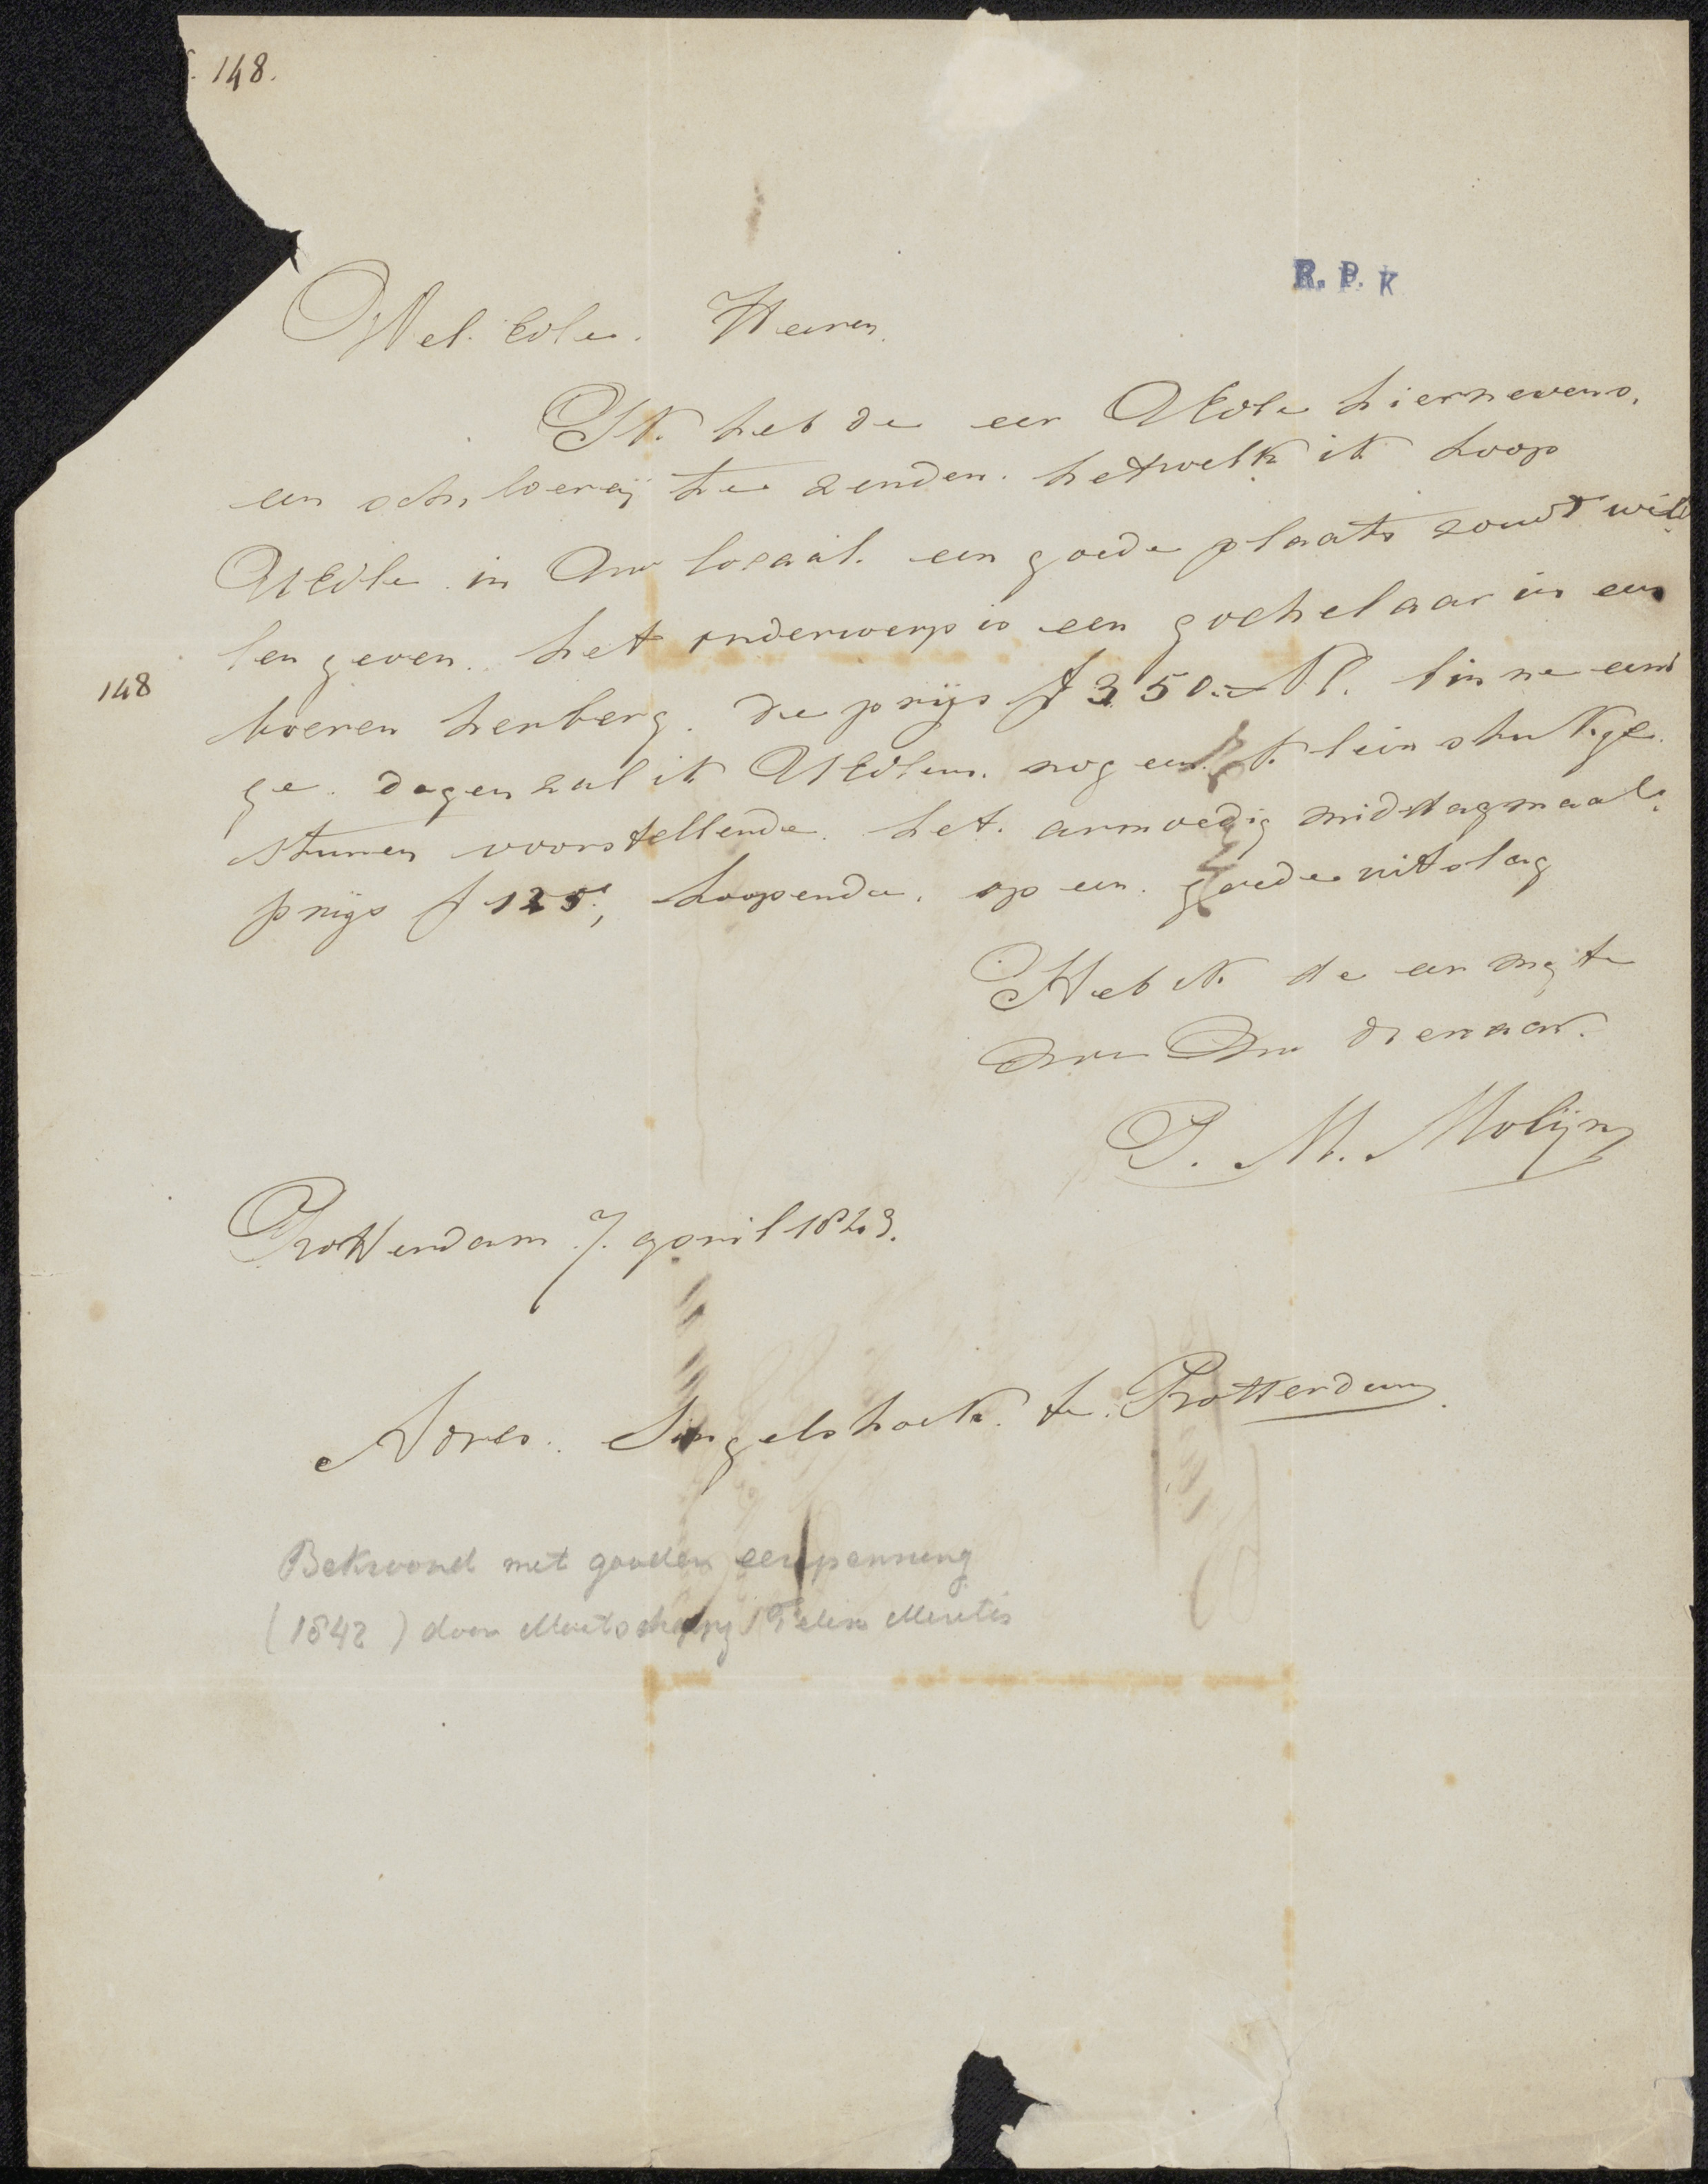 148.
R. P. K
Wel. Edle. Heeren
Ik heb de eer UEdle hiernevens.
een schilderij te zenden. hetwelk ik hoop
UEdle in Uw locaal. een goede plaats zoudt wil
len geven. het onderwerp is een gochelaar in een
148
boeren herberg. de prijs f 350.- Nl. binne eeni
ge. dagen zal ik UEdlens. nog een klein stukge
sturen voorstellende. het. armoedig middagmaal.
prijs f 125., hoopende. op een. goede uitslag
Heb ik de eer mij te
Uw dienaar.
P. M. Molijn
Rotterdam. 7. april 1843.
Adres. Singelshoek. te. Rotterdam.
Bekroond met gouden eerepenning
(1842) door Maatschappij Felix Meritis